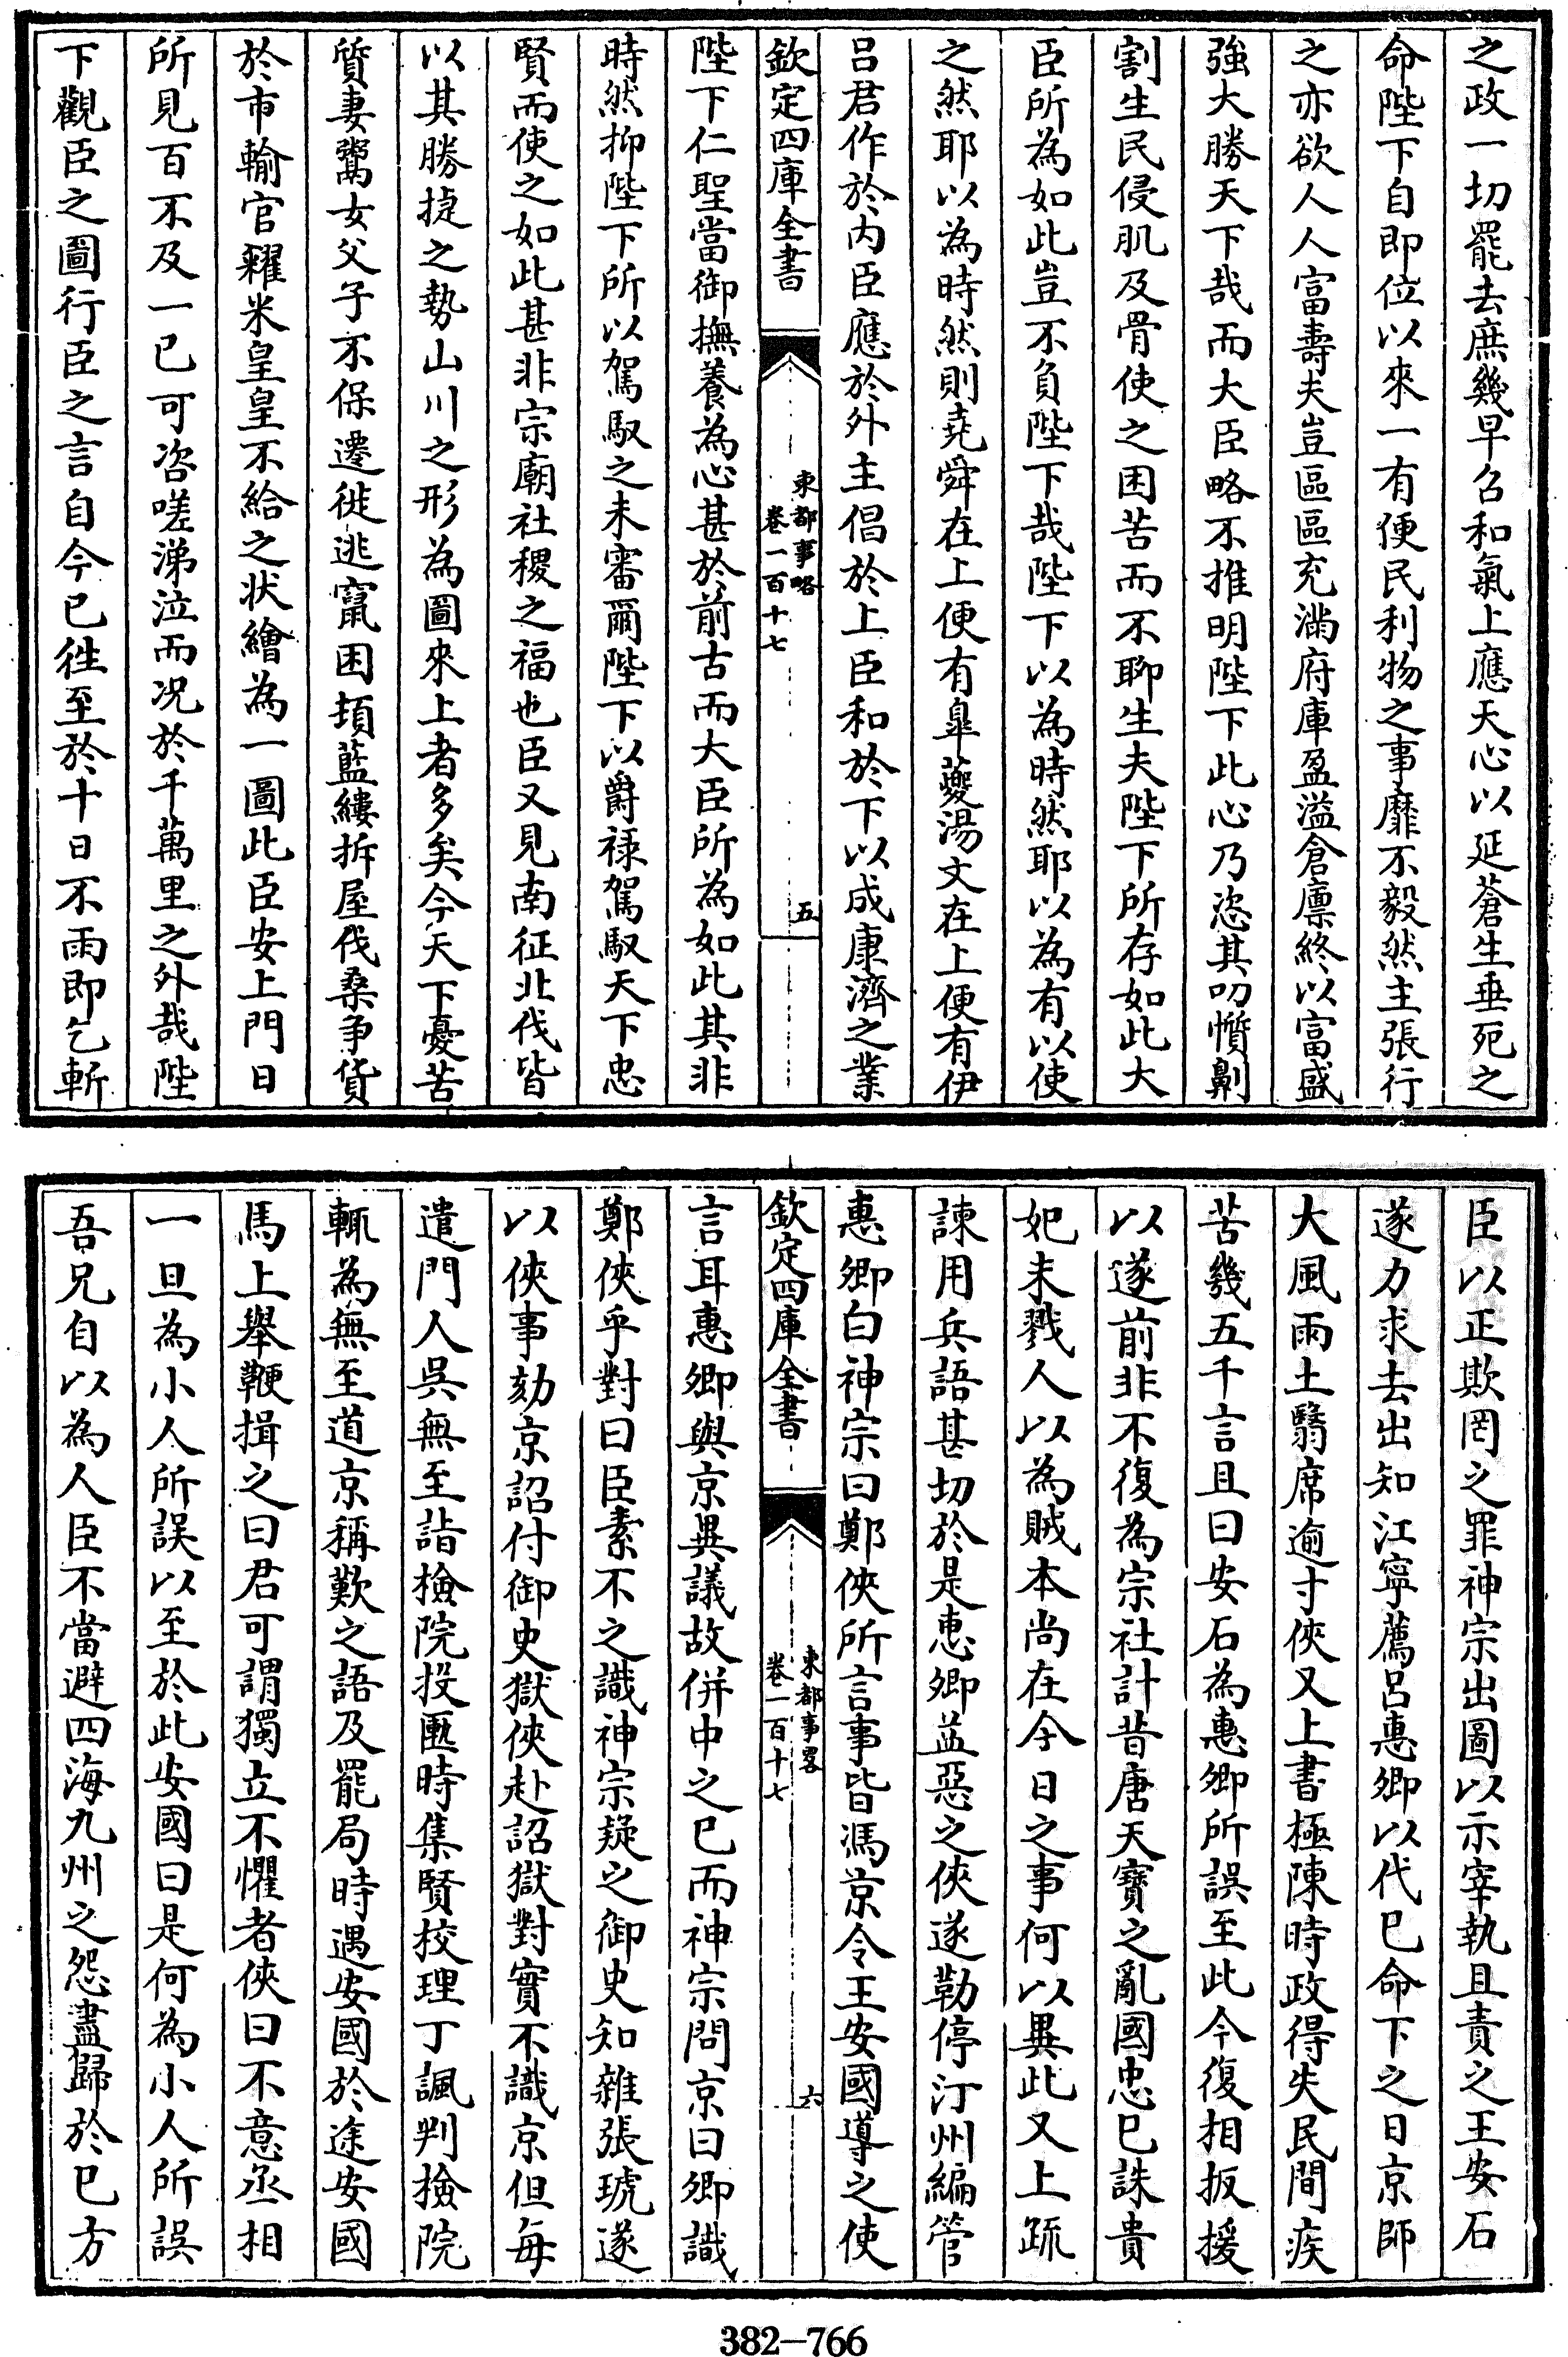 之政一切罷去庶幾早召和氣上應天心以延蒼生垂死之
命陛下自即位以來一有便民利物之事靡不毅然主張行
之亦欲人人富壽夫豈區區充滿府庫盈溢倉廪終以富盛
強大勝天下哉而大臣略不推明陛下此心乃恣其叨懫劓
割生民侵肌及骨使之困苦而不聊生夫陛下所存如此大
臣所為如此豈不負陛下哉陛下以為時然耶以為有以使
之然耶以為時然則堯舜在上便有臯夔湯文在上便有伊
呂君作於内臣應於外主倡於上臣和於下以成康濟之業
欽定四庫全書
東都事略
卷一百十七
五
陛下仁聖當御撫養為心甚於前古而大臣所為如此其非
時然抑陛下所以駕馭之未審爾陛下以爵禄駕馭天下忠
賢而使之如此甚非宗廟社稷之福也臣又見南征北伐皆
以其勝捷之勢山川之形為圖來上者多矣今天下憂苦
質妻鬻女父子不保遷徙逃竄困頓藍縷拆屋伐桑爭貨
於市輸官糴米皇皇不給之状繪為一圖此臣安上門日
所見百不及一已可咨嗟涕泣而况於千萬里之外哉陛
下觀臣之圖行臣之言自今已徃至於十日不雨即乞斬
臣以正欺罔之罪神宗出圖以示宰執且責之王安石
遂力求去出知江寧薦呂惠卿以代已命下之日京師
大風雨土翳席逾寸俠又上書極陳時政得失民間疾
苦幾五千言且曰安石為惠卿所誤至此今復相扳援
以遂前非不復為宗社計昔唐天寶之亂國忠已誅貴
妃未戮人以為賊本尚在今日之事何以異此又上疏
諫用兵語甚切於是惠卿益惡之俠遂勒停汀州編管
惠卿白神宗曰鄭俠所言事皆馮京令王安國導之使
欽定四庫全書
東都事畧
卷一百十七
六
言耳惠卿與京異議故併中之已而神宗問京曰卿識
鄭俠乎對曰臣素不之識神宗疑之御史知雜張琥遂
以俠事劾京詔付御史獄俠赴詔獄對實不識京但每
遣門人吳無至詣檢院投匭時集賢校理丁諷判檢院
輒為無至道京稱歎之語及罷局時遇安國於途安國
馬上舉鞭揖之曰君可謂獨立不懼者俠曰不意丞相
一旦為小人所誤以至於此安國曰是何為小人所誤
吾兄自以為人臣不當避四海九州之怨盡歸於已方
382-766